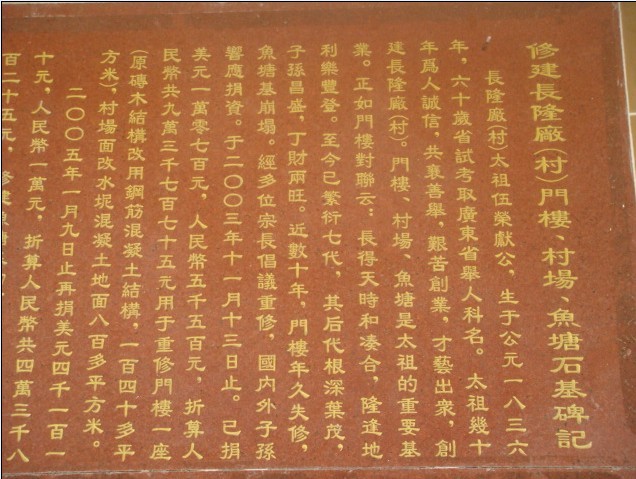 修建長隆廠(村)門樓、村場、魚塘石基碑記
長隆廠(村)太祖伍榮獻公，生于公元一八三六
年，六十歲省試考取廣東省舉人科名。太祖幾十
年爲人誠信，共襄善舉，艱苦創業，才藝出衆，創
建長隆廠(村)。門樓、村場、魚塘是太祖的重要基
業。正如門樓對聯云：長得天時和凑合，隆逢地
利樂豐登。至今已繁衍七代，其后代根深葉茂，
子孫昌盛，丁財兩旺。近數十年，門樓年久失修，
魚塘基崩塌。經多位宗長倡議重修，國内外子孫
響應捐資。于二〇〇三年十一月十三日止。已捐
美元一萬零七百元，人民幣五千五百元，折算人
民幣共九萬三千七百七十五元用于重修門樓一座
(原磚木結構改用鋼筋混凝土結構，一百四十多平
方米)，村場面改水坭混凝土地面八百多平方米。
二〇〇五年一月九日止再捐美元四千一百一
十元，人民幣一萬元，折算人民幣共四萬三千八
百二十五元，修建